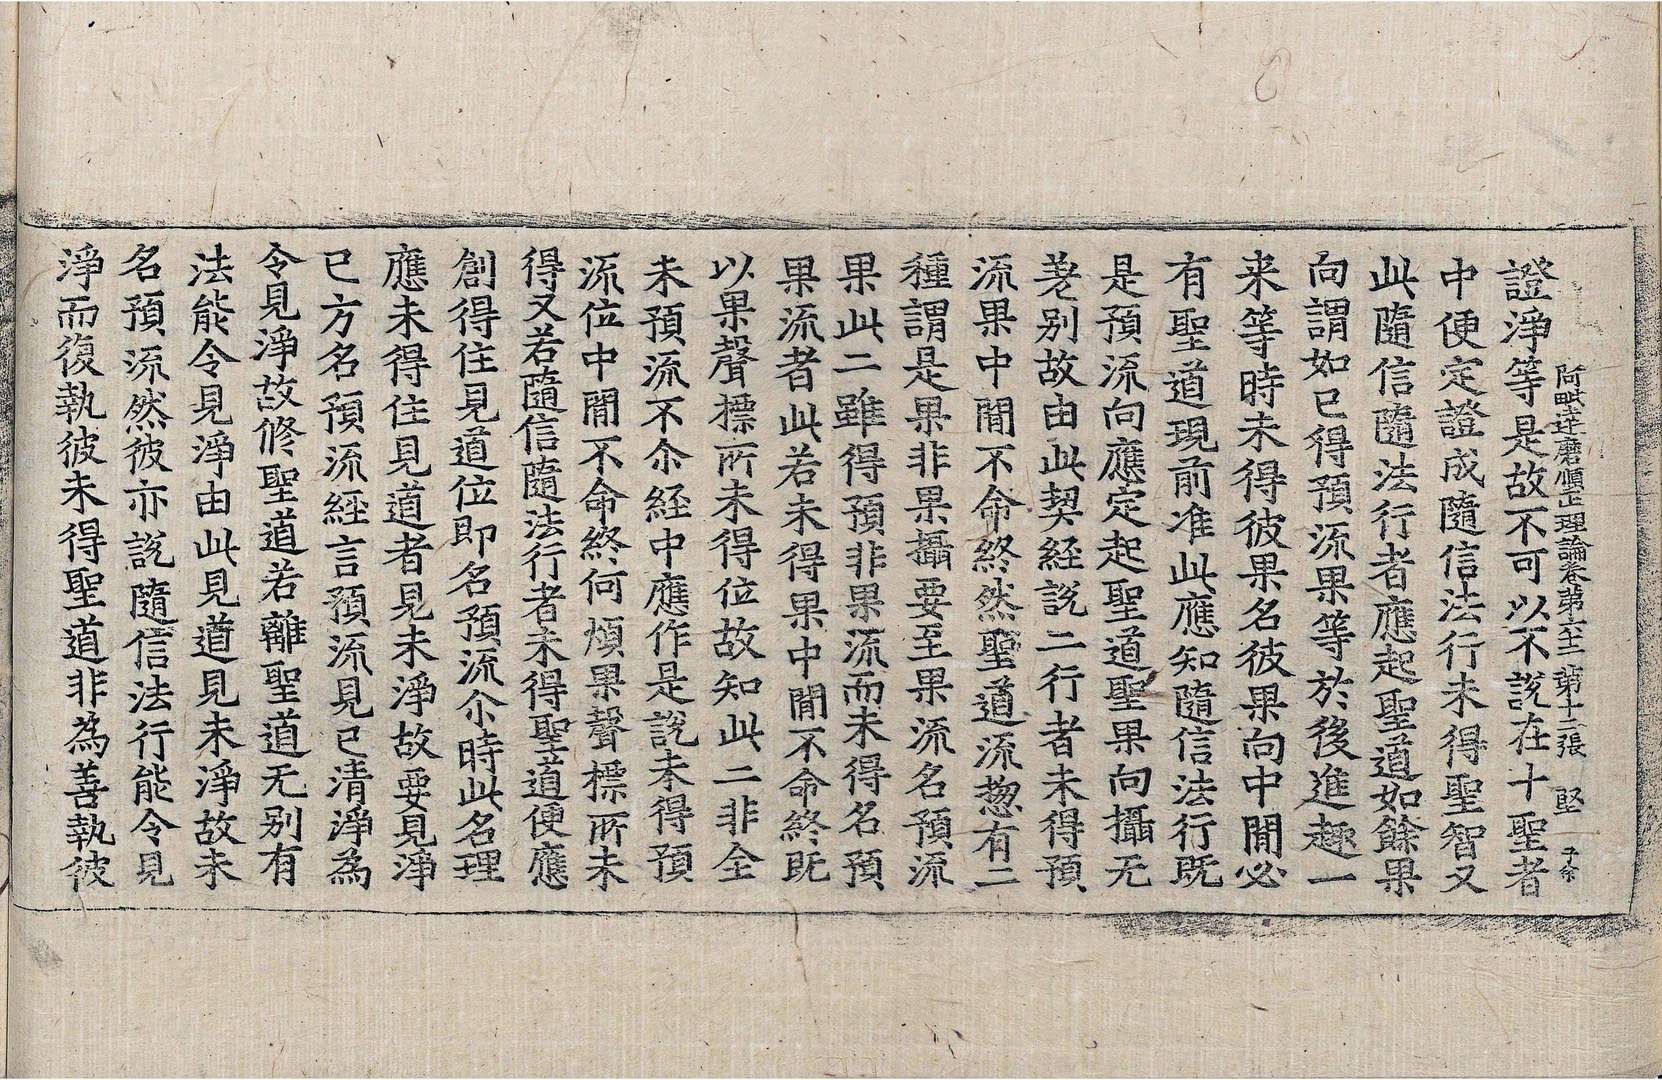 阿毗達磨順正理論卷第六十二 第十二張 堅
證淨等是故不可以不說在十聖者
中便定證成隨信法行未得聖智又
此隨信隨法行者應起聖道如餘果
向謂如已得預流果等於後進趣一
来等時未得彼果名彼果向中間必
有聖道現前准此應知隨信法行既
是預流向應定起聖道聖果向攝无
差别故由此契経說二行者未得預
流果中間不命終然聖道流惣有二
種謂是果非果攝要至果流名預流
果此二雖得預非果流而未得名預
果流者此若未得果中間不命終既
以果聲摽所未得位故知此二非全
未預流不尒経中應作是說未得預
流位中間不命終何煩果聲摽所未
得又若隨信隨法行者未得聖道便應
創得住見道位即名預流尒時此名理
應未得住見道者見未淨故要見淨
已方名預流経言預流見已清淨為
令見淨故修聖道若離聖道无别有
法能令見淨由此見道見未淨故未
名預流然彼亦說隨信法行能令見
淨而復執彼未得聖道非為善執彼